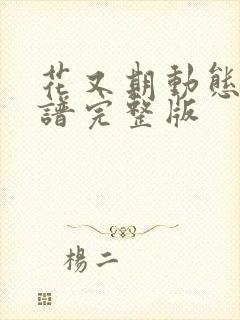 花又期動態
譜完整版
楊二